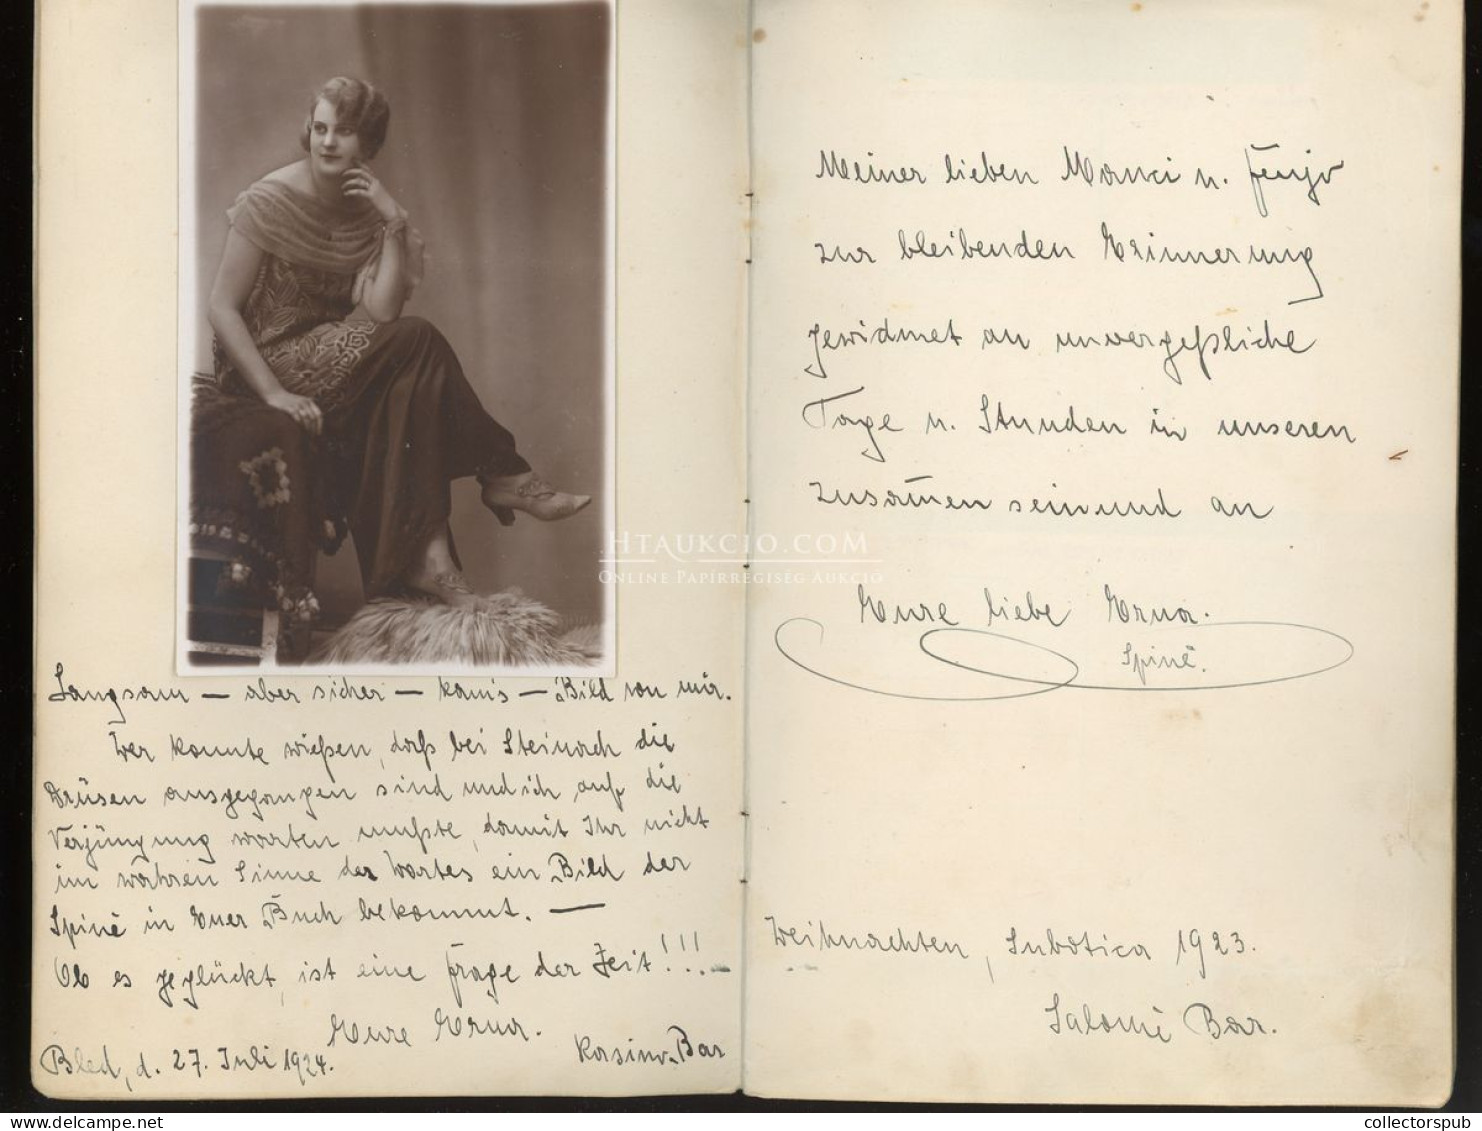 Langsam — aber sicher — kam's — Bild von mir.
Wer konnte wißen, daß bei Steinach die
Drüsen ausgegangen sind und ich auf die
Verjüngung warten mußte, damit Ihr nicht
im wahren Sinne des Wortes ein Bild der
Spinè in Euer Buch bekommt. —
Ob es geglückt, ist eine Frage der Zeit!!! —
Eure Erna.
Bled, d. 27. Juli 1924.
Kasino-Bar
Meiner lieben Manci u. Jenjo
zur bleibenden Erinnerung
gewidmet an unvergeßliche
Tage u. Stunden in unseren
zusam̄en sein und an
Eure liebe Erna.
Spinè.
Weihnachten, Subotica 1923.
Salomè Bar.
HTAUKCIO.COM
ONLINE PAPÍRRÉGISÉG AUKCIÓ
collectorspub